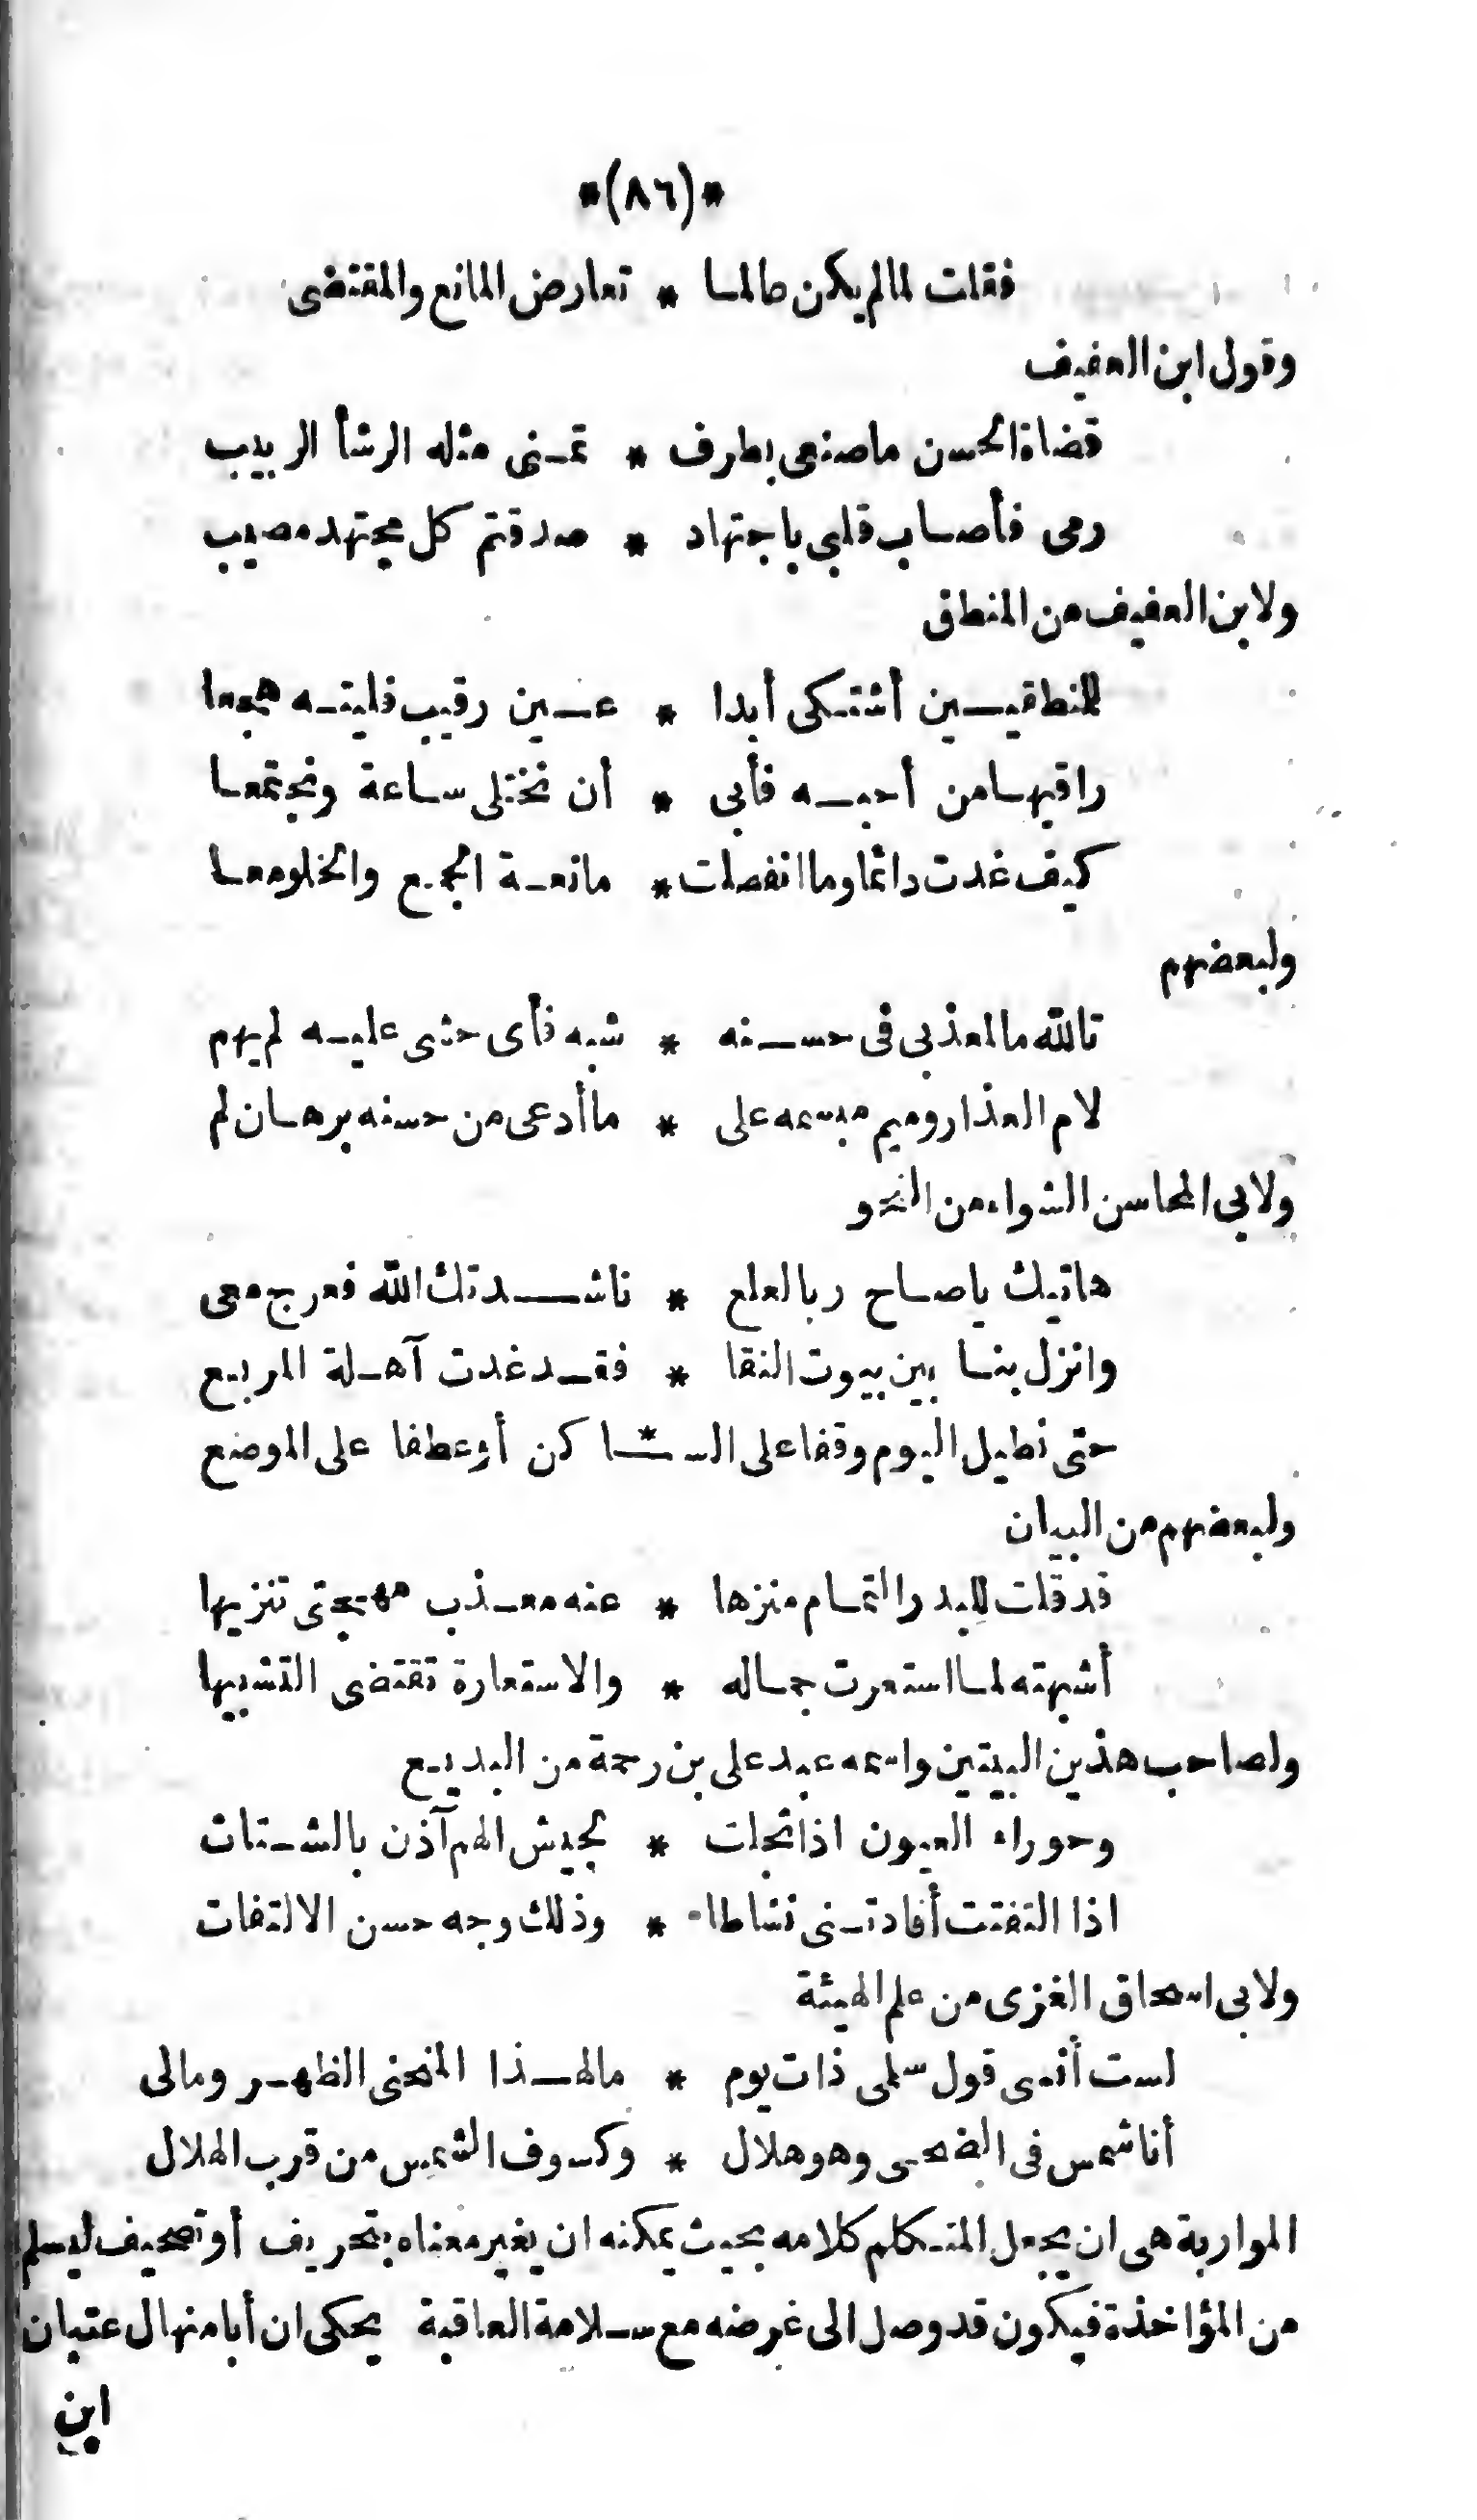 *(٨٦)*
فقلت لما لم يكن طالما * تعارض المانع والمقتضى
وقول ابن العفيف
قضاة الحسن ما صنعى بطرف * تمنى مثله الرشأ الربيب
رمى فأصاب قلبى باجتهاد * صدقتم كل مجتهد مصيب
ولابن العفيف من المنطق
للمنطقيين أشتكى أبدا * عين رقيب فليته هجعا
راقبها من أحبه فأبى * أن نختلى ساعة ونجتمعا
كيف غدت دائما وما انفصلت * مانعة الجمع والخلو معا
ولبعضهم
تالله ما لمعذبى فى حسنه * شبه فأى حشى عليه لم يهم
لام العذار وميم مبسمه على * ما أدعى من حسنه برهان لم
ولابى المحاسن الشواء من النحو
هاتيك يا صاح ربا لعلع * ناشدتك الله فعرج معى
وانزل بنا بين بيوت النقا * فقد غدت آهلة المربع
حتى نطيل اليوم وقفا على السا * كن أو عطفا على الموضع
ولبعضهم من البيان
قد قلت للبدر التمام منزها * عنه معذب مهجتى تنزيها
أشبهته لما استعرت جماله * والاستعارة تقتضى التشبيها
ولصاحب هذين البيتين واسمه عبد على بن رحمة من البديع
وحوراء العيون اذا تجلت * لجيش الهم آذن بالشتات
اذا التفتت أفادتنى نشاطا * وذلك وجه حسن الالتفات
ولابى اسحاق الغزى من علم الهيئة
لست أنسى قول سلمى ذات يوم * ما لهذا المنحنى الظهر ومالى
أنا شمس فى الضحى وهو هلال * وكسوف الشمس من قرب الهلال
المواربة هى ان يجعل المتكلم كلامه بحيث يمكنه ان يغير معناه بتحريف أو تصحيف ليسلم
من المؤاخذة فيكون قد وصل الى غرضه مع سلامة العاقبة يحكى ان أبا منهال عتبان
ابن